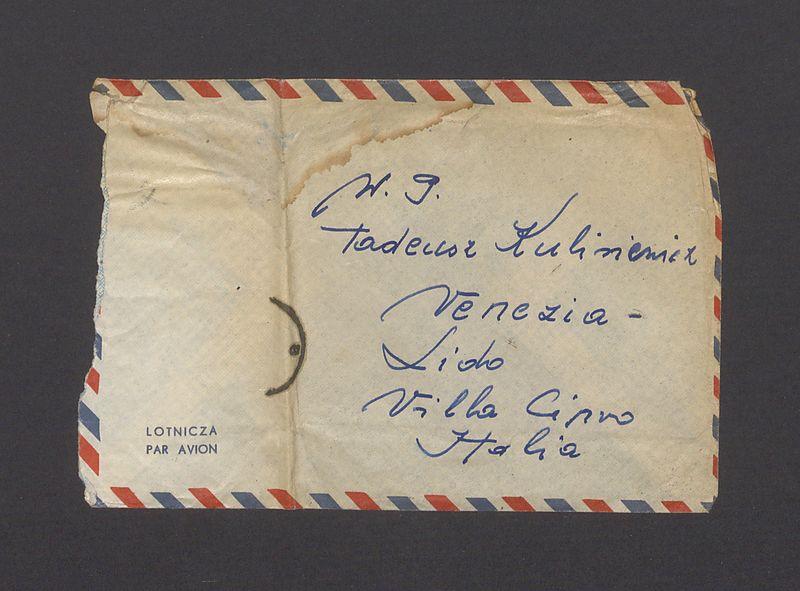 W. P.
Tadeusz Kulisiewicz
Venezia-
Lido
Villa Cipro
Italia
LOTNICZA
PAR AVION